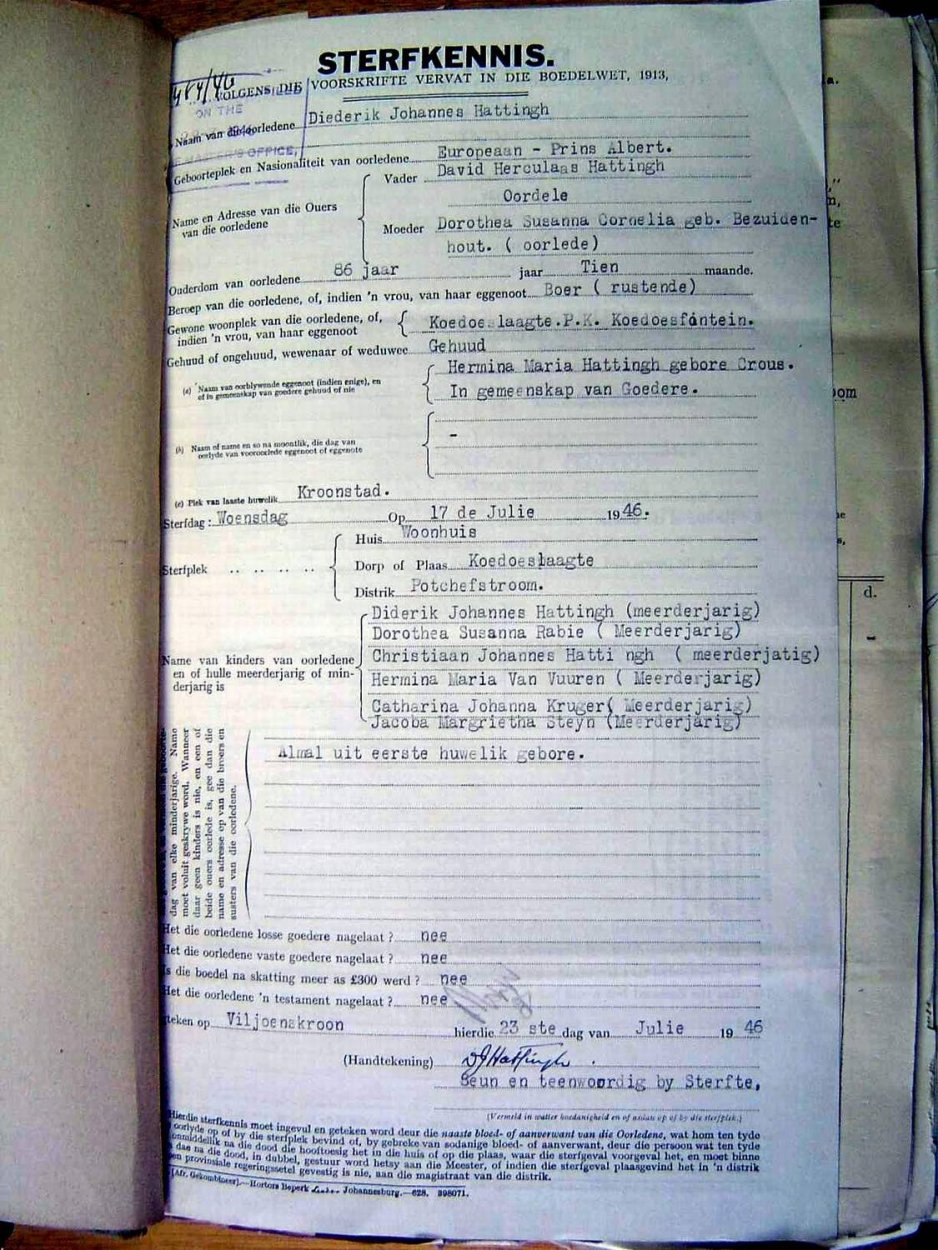 STERFKENNIS.
VOLGENS DIE VOORSKRIFTE VERVAT IN DIE BOEDELWET, 1913,
ON THE
OFFICE,
Naam van die oorledene Diederik Johannes Hattingh
Geboorteplek en Nasionaliteit van oorledene Europeaan - Prins Albert.
Name en Adresse van die Ouers van die oorledene
Vader David Herculaas Hattingh
Oordele
Moeder Dorothea Susanna Cornelia geb. Bezuiden-
hout. ( oorlede)
Ouderdom van oorledene 86 jaar jaar Tien maande.
Beroep van die oorledene, of, indien 'n vrou, van haar eggenoot Boer ( rustende)
Gewone woonplek van die oorledene, of,
indien 'n vrou, van haar eggenoot
Koedoeslaagte.P.K. Koedoesfontein.
Gehuud of ongehuud, wewenaar of weduwee Gehuud
(a) Naam van oorblywende eggenoot (indien enige), en
of in gemeenskap van goedere gehuud of nie
Hermina Maria Hattingh gebore Crous.
In gemeenskap van Goedere.
(b) Naam of name en so na moontlik, die dag van
oorlyde van vooroorlede eggenoot of eggenote
-
(c) Plek van laaste huwelik Kroonstad.
Sterfdag: Woensdag Op 17 de Julie 1946.
Sterfplek .. .. .. .. ..
Huis Woonhuis
Dorp of Plaas Koedoeslaagte
Distrik Potchefstroom.
Name van kinders van oorledene
en of hulle meerderjarig of min-
derjarig is
Diderik Johannes Hattingh (meerderjarig)
Dorothea Susanna Rabie ( Meerderjarig)
Christiaan Johannes Hatti ngh ( meerderjatig)
Hermina Maria Van Vuuren ( Meerderjarig)
Catharina Johanna Kruger( Meerderjarig)
Jacoba Margrietha Steyn (Meerderjarig)
dag van elke minderjarige. Name
moet voluit geskrywe word. Wanneer
daar geen kinders is nie, en een of
beide ouers oorlede is, gee dan die
name en adresse op van die broers en
susters van die oorledene.
Almal uit eerste huwelik gebore.
Het die oorledene losse goedere nagelaat ? nee
Het die oorledene vaste goedere nagelaat ? nee
Is die boedel na skatting meer as £300 werd ? nee
Het die oorledene 'n testament nagelaat ? nee
teken op Viljoenskroon hierdie 23 ste dag van Julie 19 46
(Handtekening) DJHattingh.
Seun en teenwoordig by Sterfte,
(Vermeld in watter hoedanigheid en of aanwesig op of by die sterfplek.)
Hierdie sterfkennis moet ingevul en geteken word deur die naaste bloed- of aanverwant van die Oorledene, wat hom ten tyde
oorlyde op of by die sterfplek bevind of, by gebreke van sodanige bloed- of aanverwant, deur die persoon wat ten tyde
onmiddelik na die dood die hooftoesig het in die huis of op die plaas, waar die sterfgeval voorgeval het, en moet binne
dae na die dood, in dubbel, gestuur word hetsy aan die Meester, of indien die sterfgeval plaasgevind het in 'n distrik
provinsiale regeringssetel gevestig is nie, aan die magistraat van die distrik.
[Afr. Gekombineer].—Hortors Beperk Johannesburg.—628. 398071.
d.